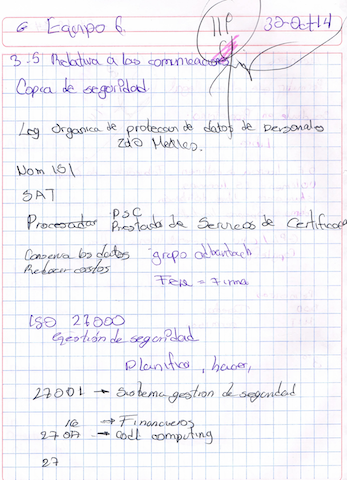 Equipo 6. 30-Oct-14
3.5 Relativa a las comunicaciones
Copia de seguridad
Ley Organica de proteccion de datos de personales
Edo Mexico.
Nom 151
SAT
Procesadar PSC Prestada de Servicios de Certificac
Conserva los datos grupo advantach
Reducir costos
Fiel = Firma
ISO 27000
Gestión de seguridad
Planifica, hacer,
27001 → Sistema gestion de seguridad
16 → Financieros
2707 → Coud computing
27